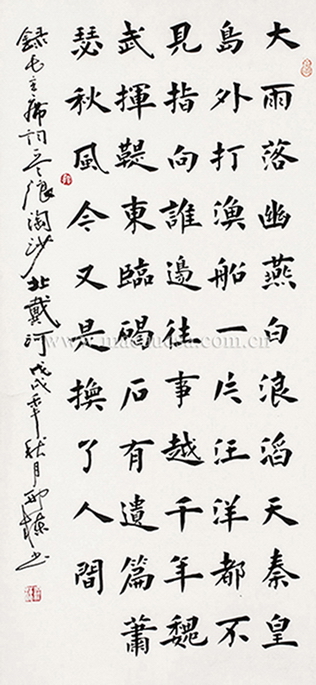 大雨落幽燕白浪滔天秦皇
島外打漁船一片汪洋都不
見指向誰邊往事越千年魏
武揮鞭東臨碣石有遺篇蕭
瑟秋風今又是換了人間
錄毛主席詞之浪淘沙北戴河戊戌年秋月书